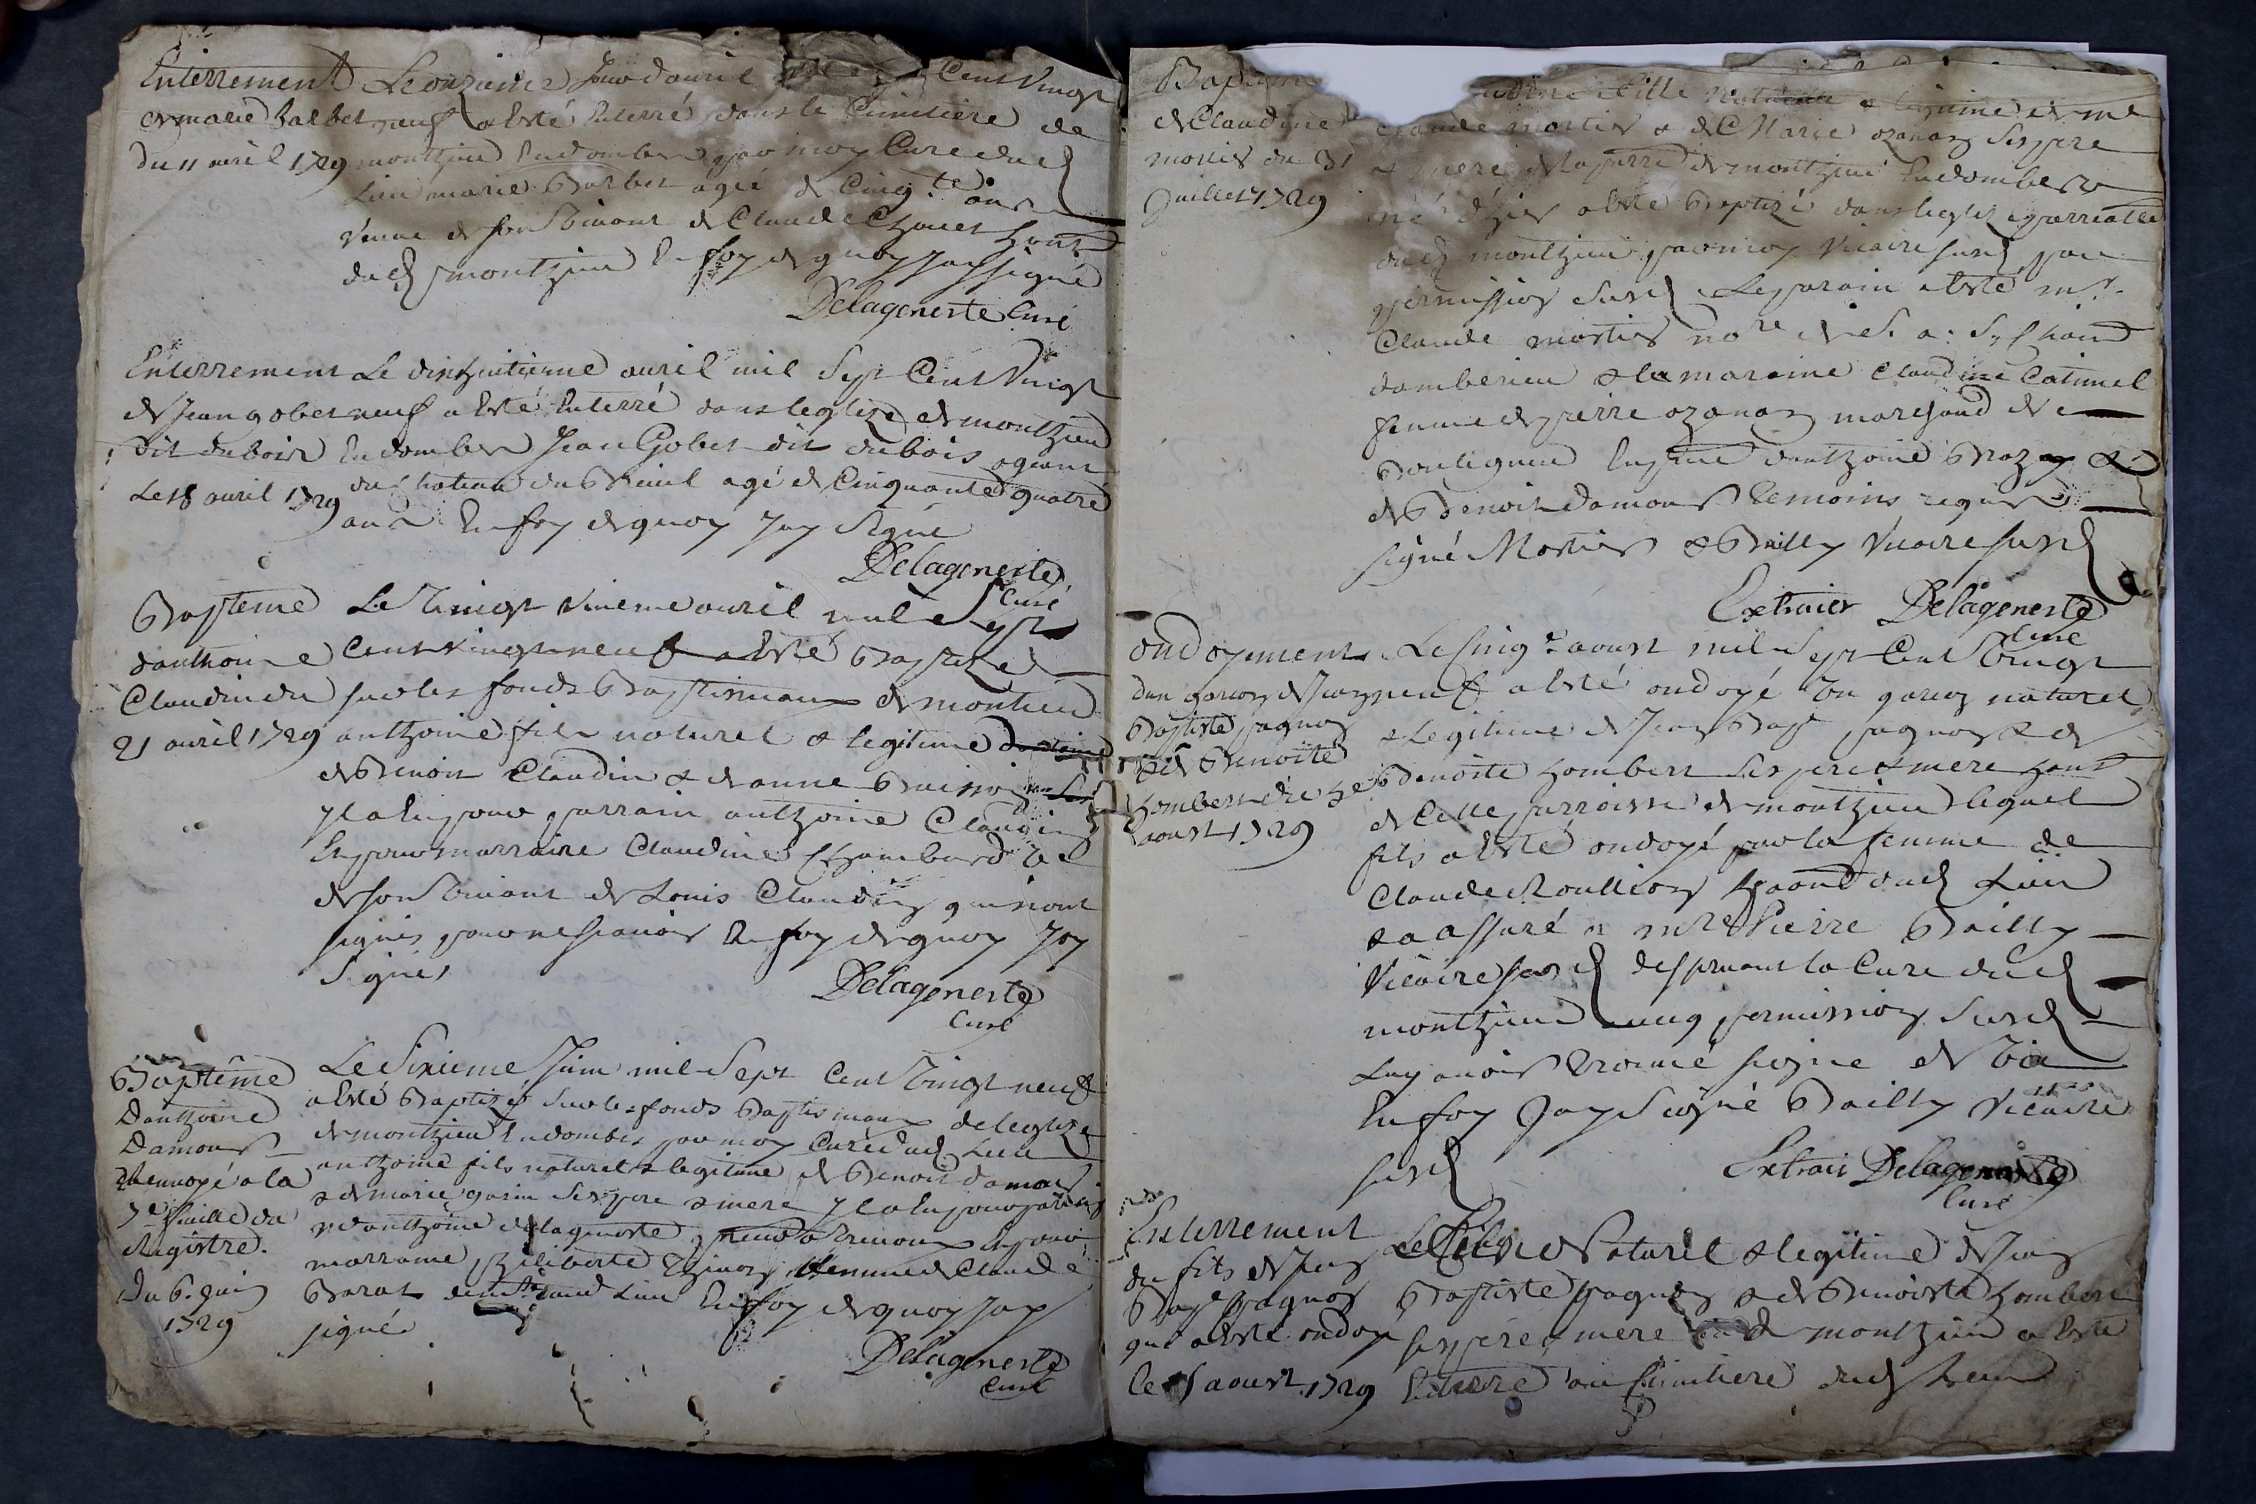 Enterrement
de marie Barbet
du 11 avril 1729
Le onzieme Jour davril Cent vingt
neuf a Esté Enterré dans le Cimitiere de
monthieu En dombes par moy Curé dud
Lieu marie Barbet agée de Cinq.te ans
veuve de son vivant de Claude Chouet
dud montzieu En foy de quoy Jay signé
Delageneste Curé
Enterrement
de Jean gobet
dit dubois
Le 18 avril 1729
Le dixhuitieme avril mil Sept Cent vingt
neuf a Esté Enterré dans leglize de montzieu
En dombes Jean Gobet dit dubois
du chateau du Breuil agé de Cinquante quatre
ans En foy de quoy Jay Signé
Delageneste
Curé
Bapteme
danthoine
Claudin du
21 avril 1729
Le vingt unieme avril mil Sept
Cent vingt neuf a Esté Baptizé
sur les fonds Baptismaux de montzieu
anthoine fils naturel & legitime
de Benoit Claudin & de anne Buisson
Il a Eu pour parrain anthoine Claudin
Et pour marraine Claudine Chambard
de son vivant de Louis Claudin qui nont
signés pour ne scavoir En foy de quoy Jay
Signés
Delageneste
Curé
Baptême
danthoine
Damour
Renvoyé a la
7e feuille du
Registre.
Du 6. Juin
1729
Le Sixieme Juin mil Sept Cent vingt neuf
a Esté Baptizé Sur les fonds Baptismaux de leglize
de montzieu En dombes par moy Curé dud Lieu
anthoine fils naturel & legitime de Benoit damour
& de marie garin Ses pere & mere Il a Eu pour parrain
anthoine delageneste Et pour
marraine philiberte femme de Claude
Barat dud Lieu En foy de quoy Jay
signé
Delageneste
Curé
Bapteme
de Claudine
mortier du 31
Juillet 1729
fille naturelle & legitime de mr
Claude mortier & de Marie ozanan Ses pere
& mere de la parroisse de montzieu En dombes
née dhier a Esté Baptizé dans leglize parroialle
dud montzieu par moy vicaire susd par
permission Susd Le parain a Esté mr.
Claude mortier nore
damberieu & la maraine Claudine Catimel
femme de pierre ozanan marchand de
Bouligneu En presence danthoine &
de Benoit damour temoins requis
signé Mortier & Bailly vicaire susd
Extrait Delageneste
Curé
ondoyement
dun garcon de Jean
Baptiste pagnon
& de Benoite
hombert du 5e
aoust 1729
Le Cinq.e aoust mil Sept Cent vingt
neuf a Esté ondoyé un garcon naturel
& legitime de Jean Bapt. pagnon & de
Benoite hombert Ses pere & mere
de Cette parroisse de montzieu lequel
fils a Esté ondoyé par la femme de
Claude Roullion dud Lieu
& a assuré a mre Pierre Bailly
vicaire susd desservant la Cure dud
montzieu avec permission Susd
Luy avoir trouvé signe de vie
En foy Jay Signé Bailly vicaire
susd
Extrait Delageneste
Curé
Enterrement
du fils de Jean
Bapt.e pagnon
qui a Esté ondoyé
le 5 aoust 1729
Le Fils Naturel & legitime de Jean
Baptiste pagnon & de Benoiste hombert
ses pere & mere de montzieu a Esté
Enterré au Cimitiere dud Lieu